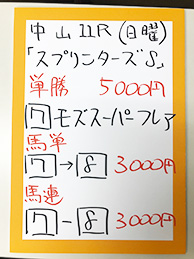 中山11R(日曜)
「スプリンターズS」
単勝 5000円
7 モズスーパーフレア
馬単
7→8 3000円
馬連
7-8 3000円